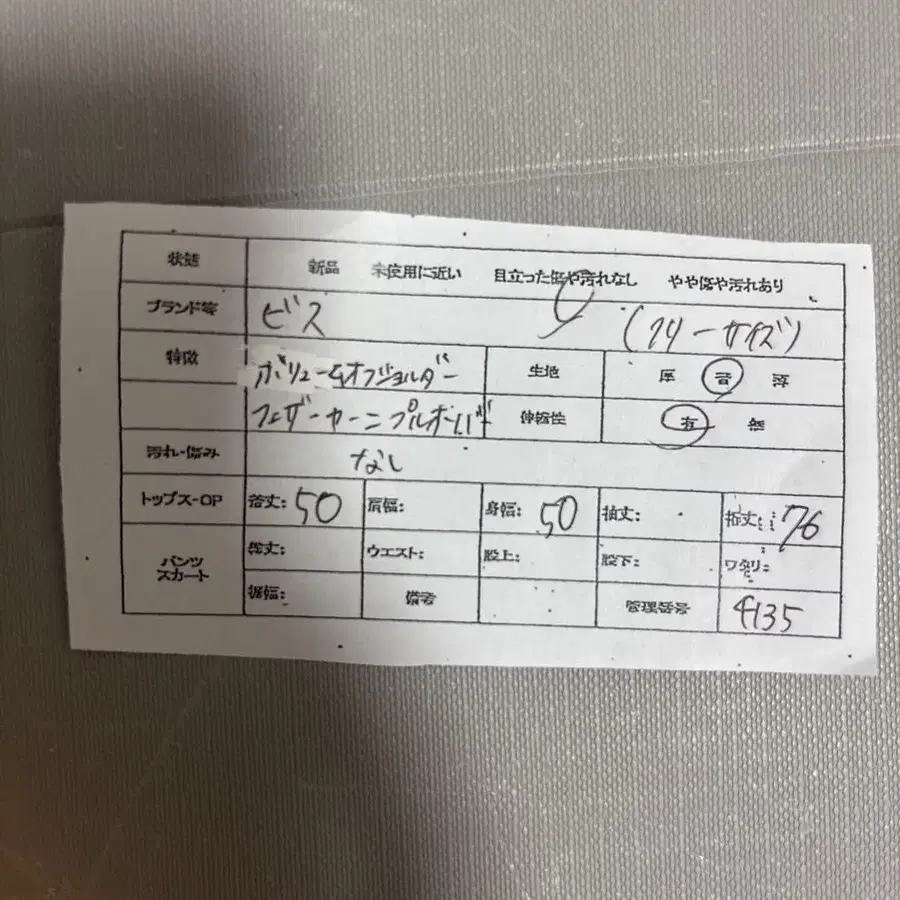 状態 新品 未使用に近い 目立った傷や汚れなし やや傷や汚れあり
ブランド等 ビス (フリーサイズ)
特徴 ボリュームオフショルダー 生地 厚 普 薄
フェザーヤーンプルオーバー 伸縮性 有 無
汚れ・傷み なし
トップス・OP 着丈: 50 肩幅: 身幅: 50 袖丈: 裄丈: 76
パンツ スカート 総丈: ウエスト: 股上: 股下: ワタリ:
裾幅: 備考 管理番号 4135